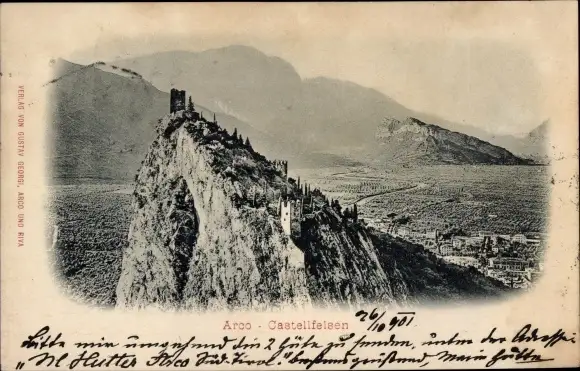 VERLAG VON GUSTAV GEORGI, ARCO UND RIVA
Arco - Castellfelsen
26/10 901
Bitte mir umgehend die 2 Hüte zu senden, unter der Adresse:
"M. Hutter Arco Süd-Tirol." bestens grüssend,